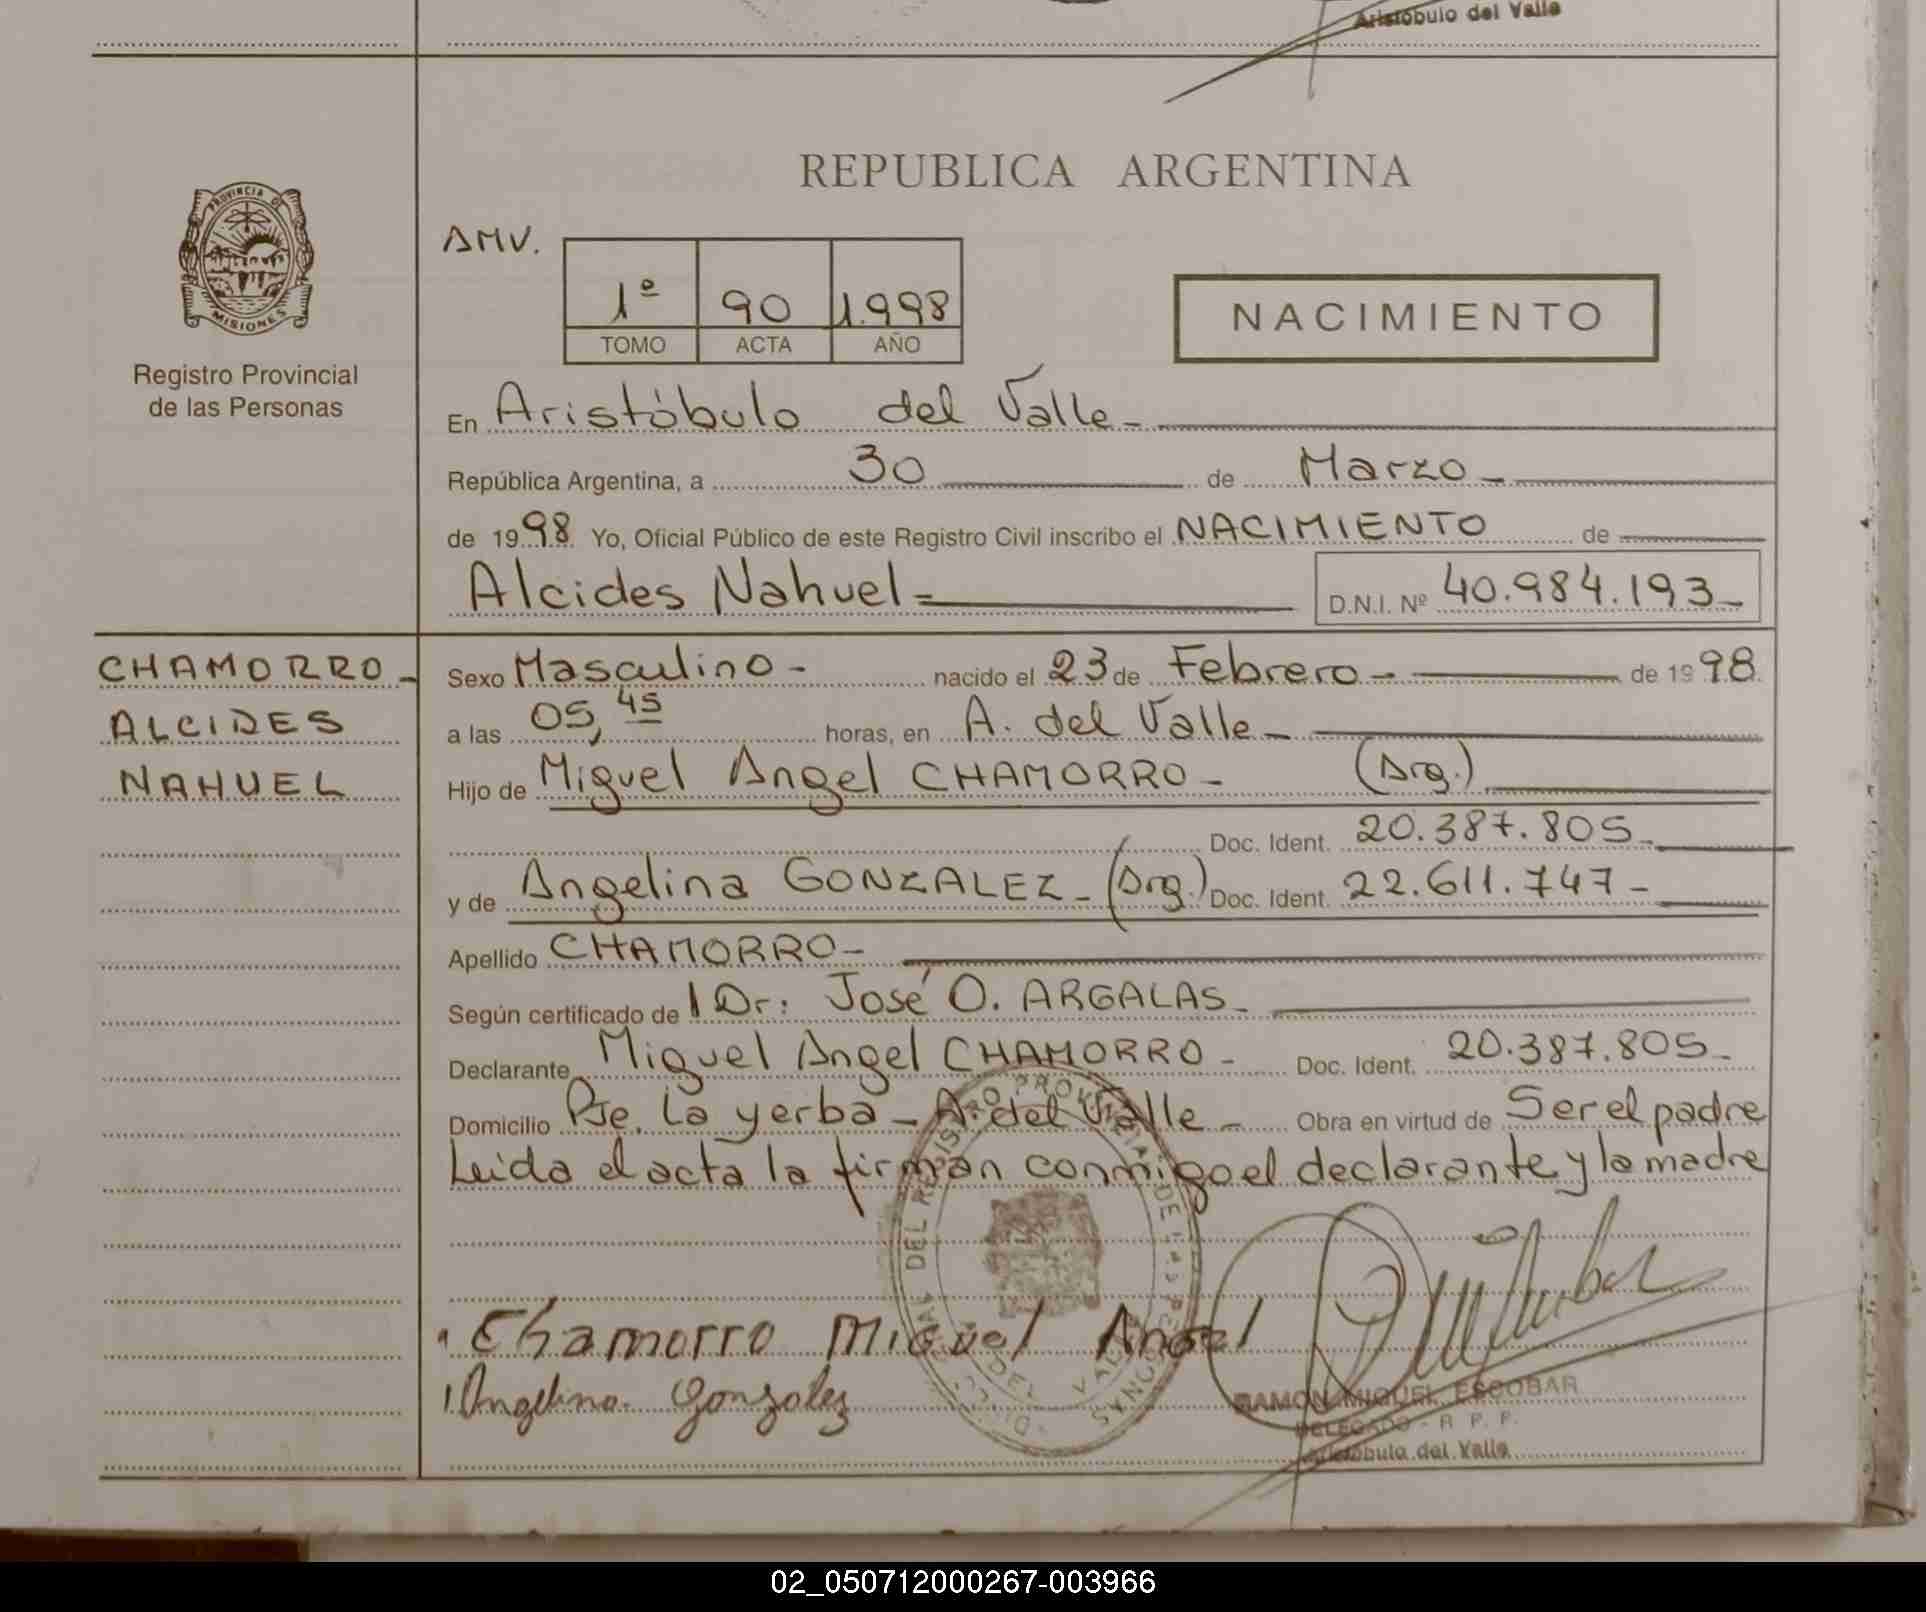 Aristóbulo del Valle
REPUBLICA ARGENTINA
PROVINCIA DE
MISIONES
Registro Provincial
de las Personas
AMV.
1º 90 1.998
TOMO ACTA AÑO
NACIMIENTO
En Aristóbulo del Valle -
República Argentina, a 30 de Marzo -
de 1998 Yo, Oficial Público de este Registro Civil inscribo el NACIMIENTO de
Alcides Nahuel - D.N.I. Nº 40.984.193 -
CHAMORRO -
ALCIDES
NAHUEL
Sexo Masculino - nacido el 23 de Febrero - de 1998
a las 05,45 horas, en A. del Valle -
Hijo de Miguel Angel CHAMORRO - (Arg.)
Doc. Ident. 20.387.805 -
y de Angelina GONZALEZ - (Arg.) Doc. Ident. 22.611.747 -
Apellido CHAMORRO -
Según certificado de l Dr: José O. ARGALAS -
Declarante Miguel Angel CHAMORRO - Doc. Ident. 20.387.805 -
Domicilio Pje. La yerba - A. del Valle - Obra en virtud de Ser el padre
Leida el acta la firman conmigo el declarante y la madre
DEL REGISTRO PROVINCIAL DE LAS PERSONAS
Chamorro Miguel Angel
Angelina Gonzalez
RAMON MIGUEL ESCOBAR
DELEGADO - R. P. P.
Aristóbulo del Valle
02_050712000267-003966